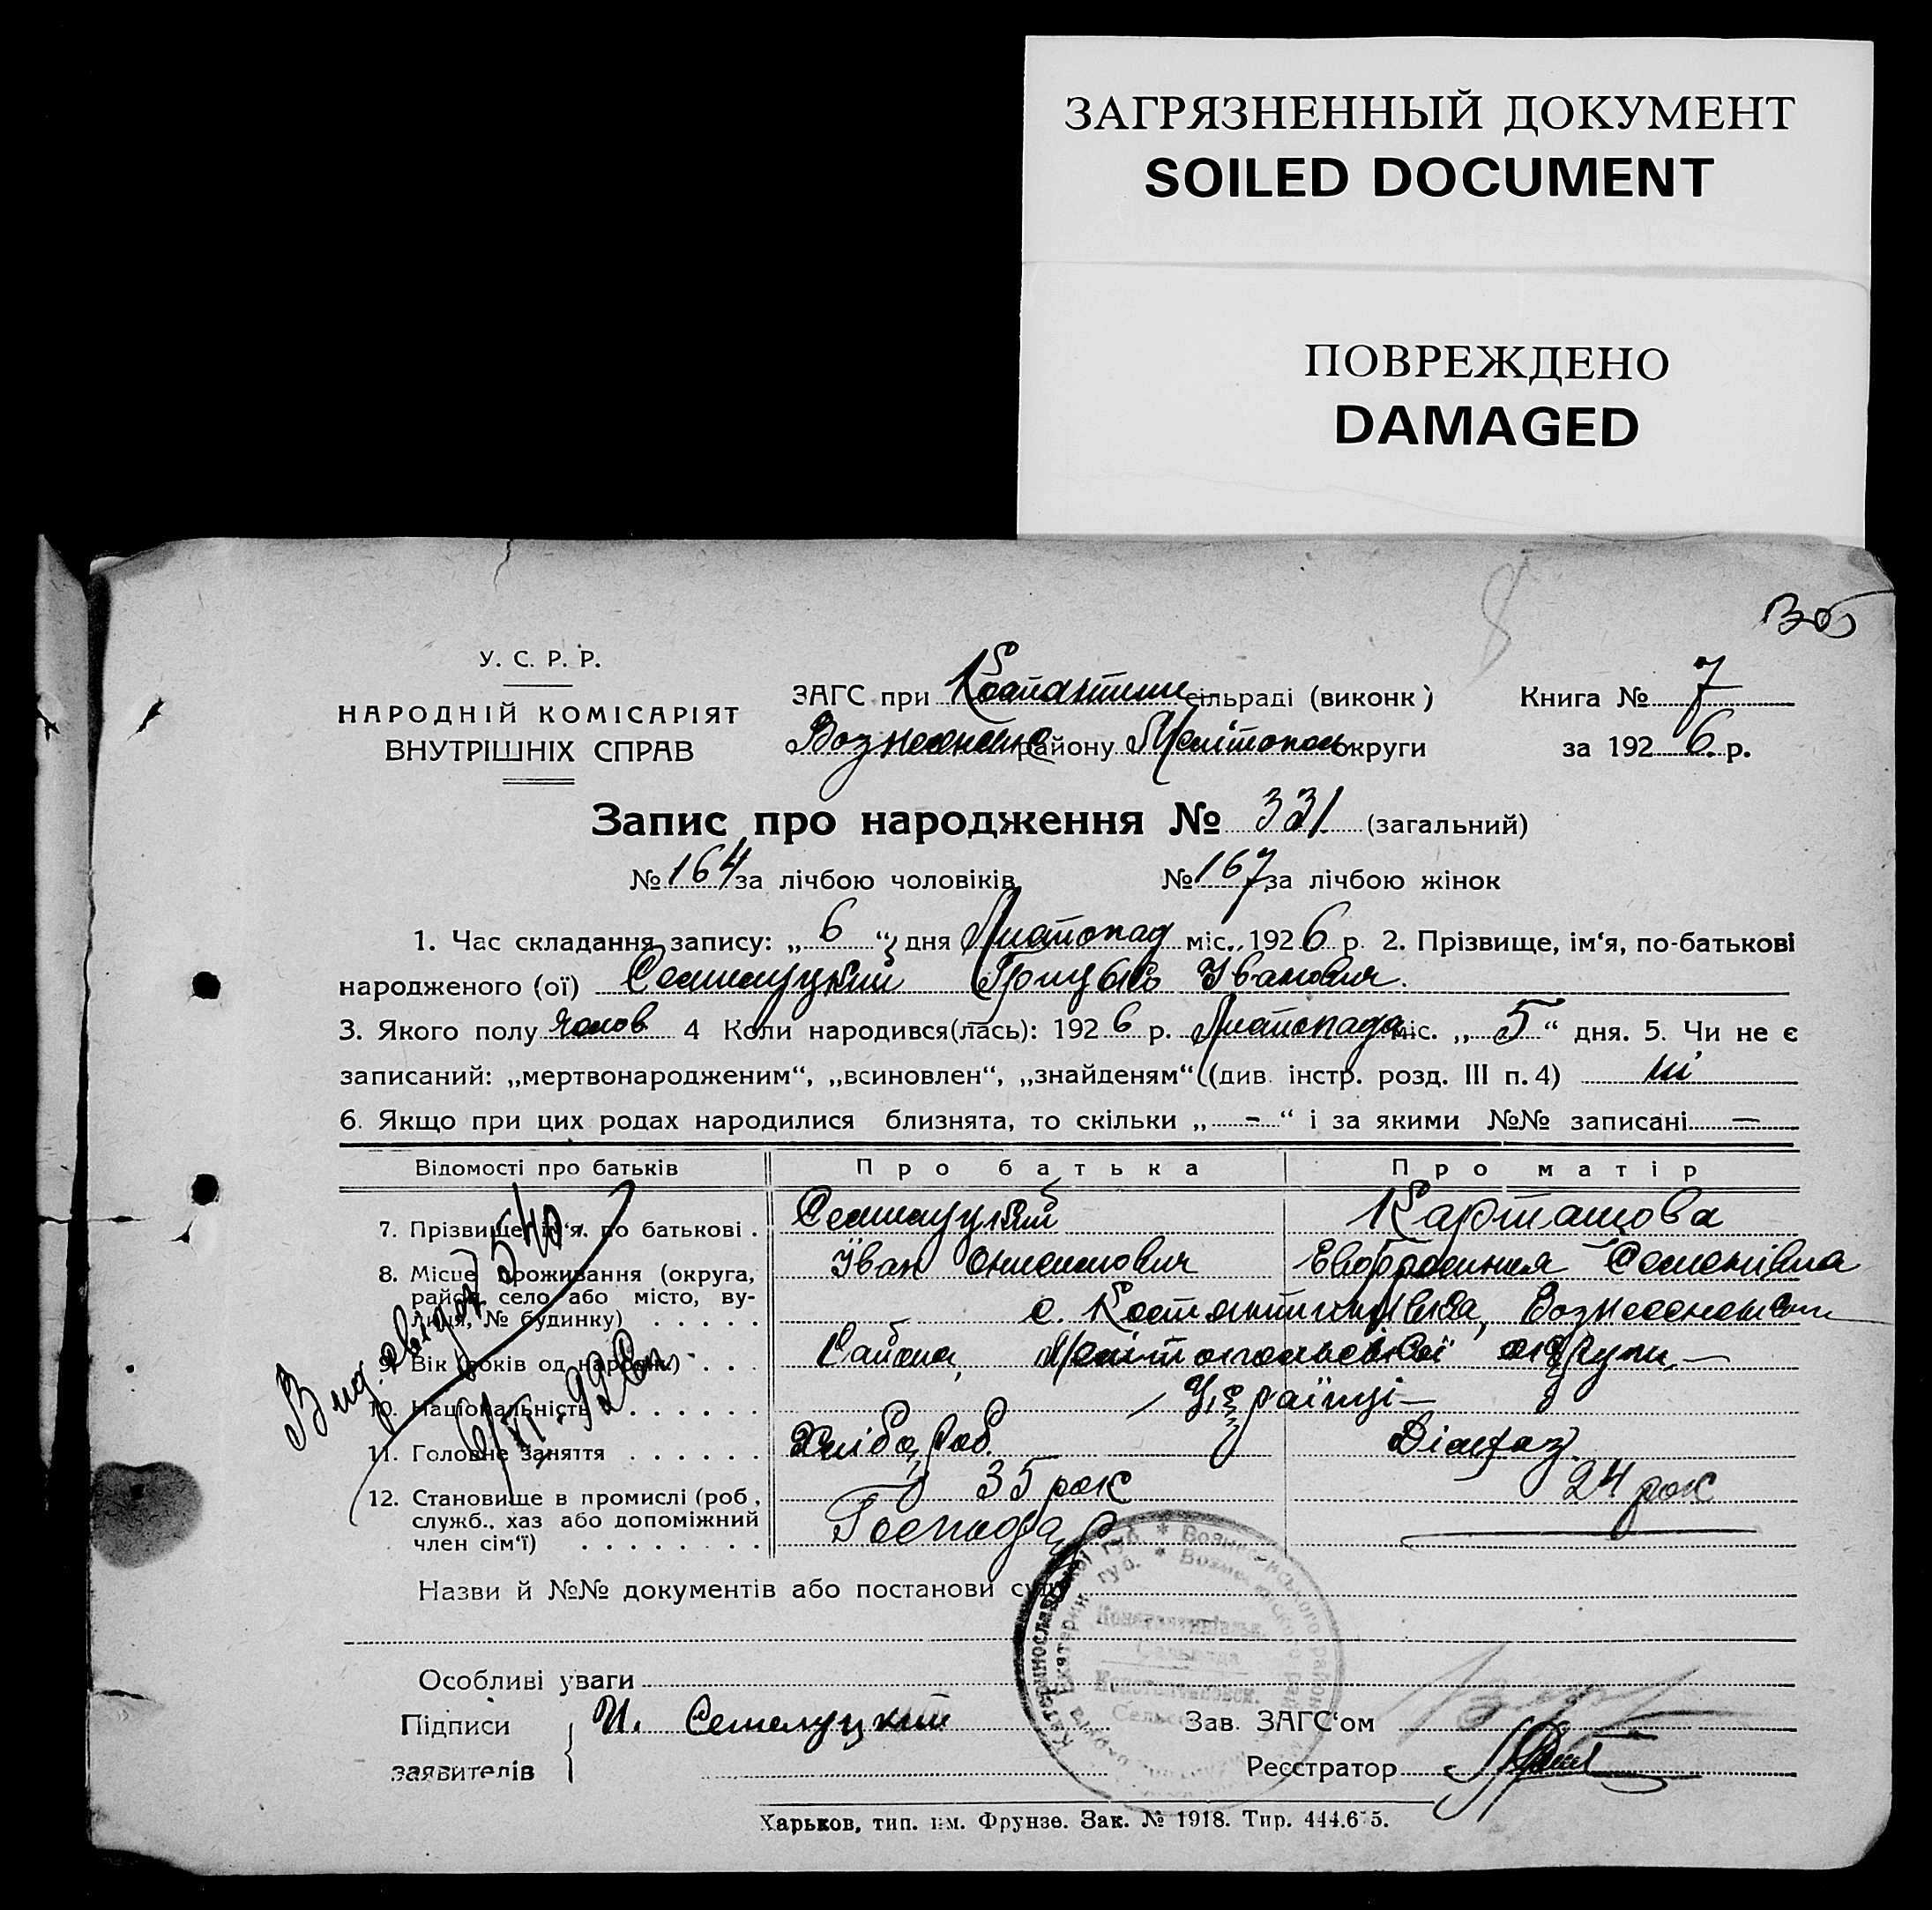 ЗАГРЯЗНЕННЫЙ ДОКУМЕНТ
SOILED DOCUMENT
ПОВРЕЖДЕНО
DAMAGED
У. С. Р. Р.
НАРОДНІЙ КОМІСАРІЯТ
ВНУТРІШНІХ СПРАВ
ЗАГС при сільраді (виконк) Книга № 7
району Мелітополь округи за 1926 р.
Запис про народження № 331 (загальний)
№ 164 за лічбою чоловіків № 167 за лічбою жінок
1. Час складання запису: „6“ дня Листопад міс. 1926 р. 2. Прізвище, ім‘я, по-батькові
народженого (ої) Семилуцкий Грицько Іванович.
3. Якого полу чолов 4 Коли народився(лась): 1926 р. Листопада міс. „5“ дня. 5. Чи не є
записаний: „мертвонародженим“, „всиновлен“, „знайденям“ (див. інстр. розд. III п. 4) ні
6. Якщо при цих родах народилися близнята, то скільки „-“ і за якими №№ записані —
Відомості про батьків Про батька Про матір
7. Прізвище, ім‘я, по батькові . Семилуцкий Карташова
Іван Онисимович Семенівна
8. Місце проживання (округа,
район, село або місто, ву-
лиця, № будинку) . . . . . с. Костянтинівка,
Района, Мелітопольської округи —
9. Вік (років од народж.) . . .
10. Національність . . . . . . Українці —
11. Головне заняття . . . . . . Хлібороб.
35 рок 24 рок
12. Становище в промислі (роб.,
служб., хаз або допоміжний
член сім‘ї) . . . . . . . . Господар
Назви й №№ документів або постанови суду
Особливі уваги
Підписи
заявителів
И. Семелуцкий
Зав. ЗАГС‘ом
Реєстратор
Харьков, тип. им. Фрунзе. Зак. № 1918. Тир.